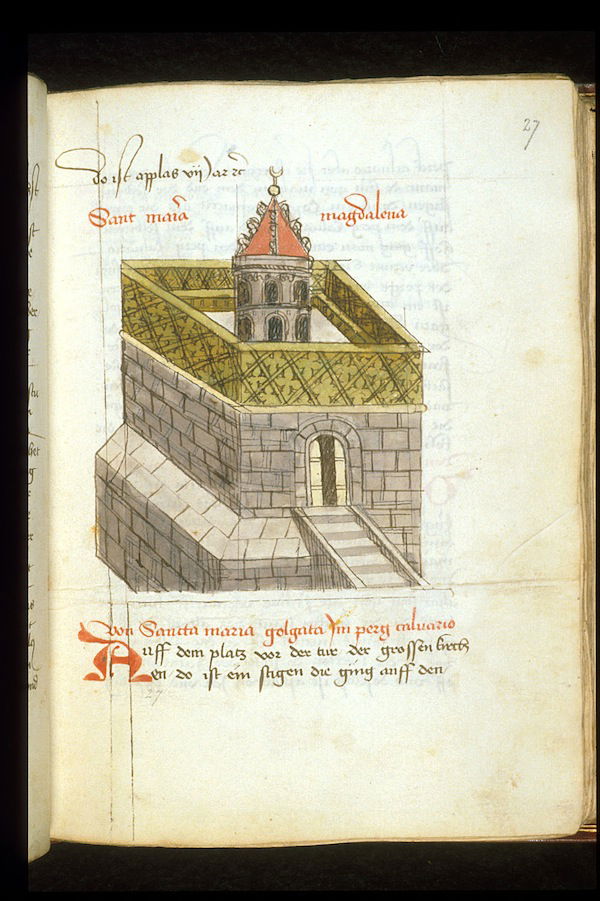 27
do ist applas vij Jar rc
Sant maria magdalena
von Sancta maria golgata Jm perg calvario
Auff dem platz vor der tur der grossen kirch
en do ist ein stigen die ging auff den
27